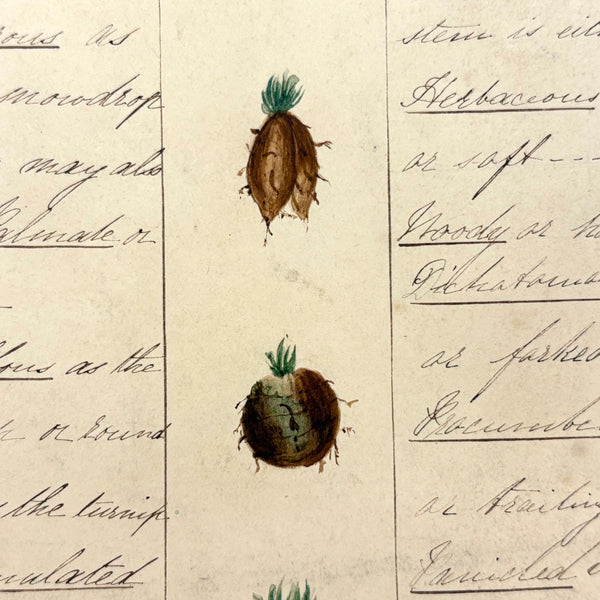 as
snowdrop
may also
Palmate or
as the
or round
the turnip
stem is eit
Herbaceous
or soft ---
Woody or h
Dichatomo
or forked
Procumbe
or trailing